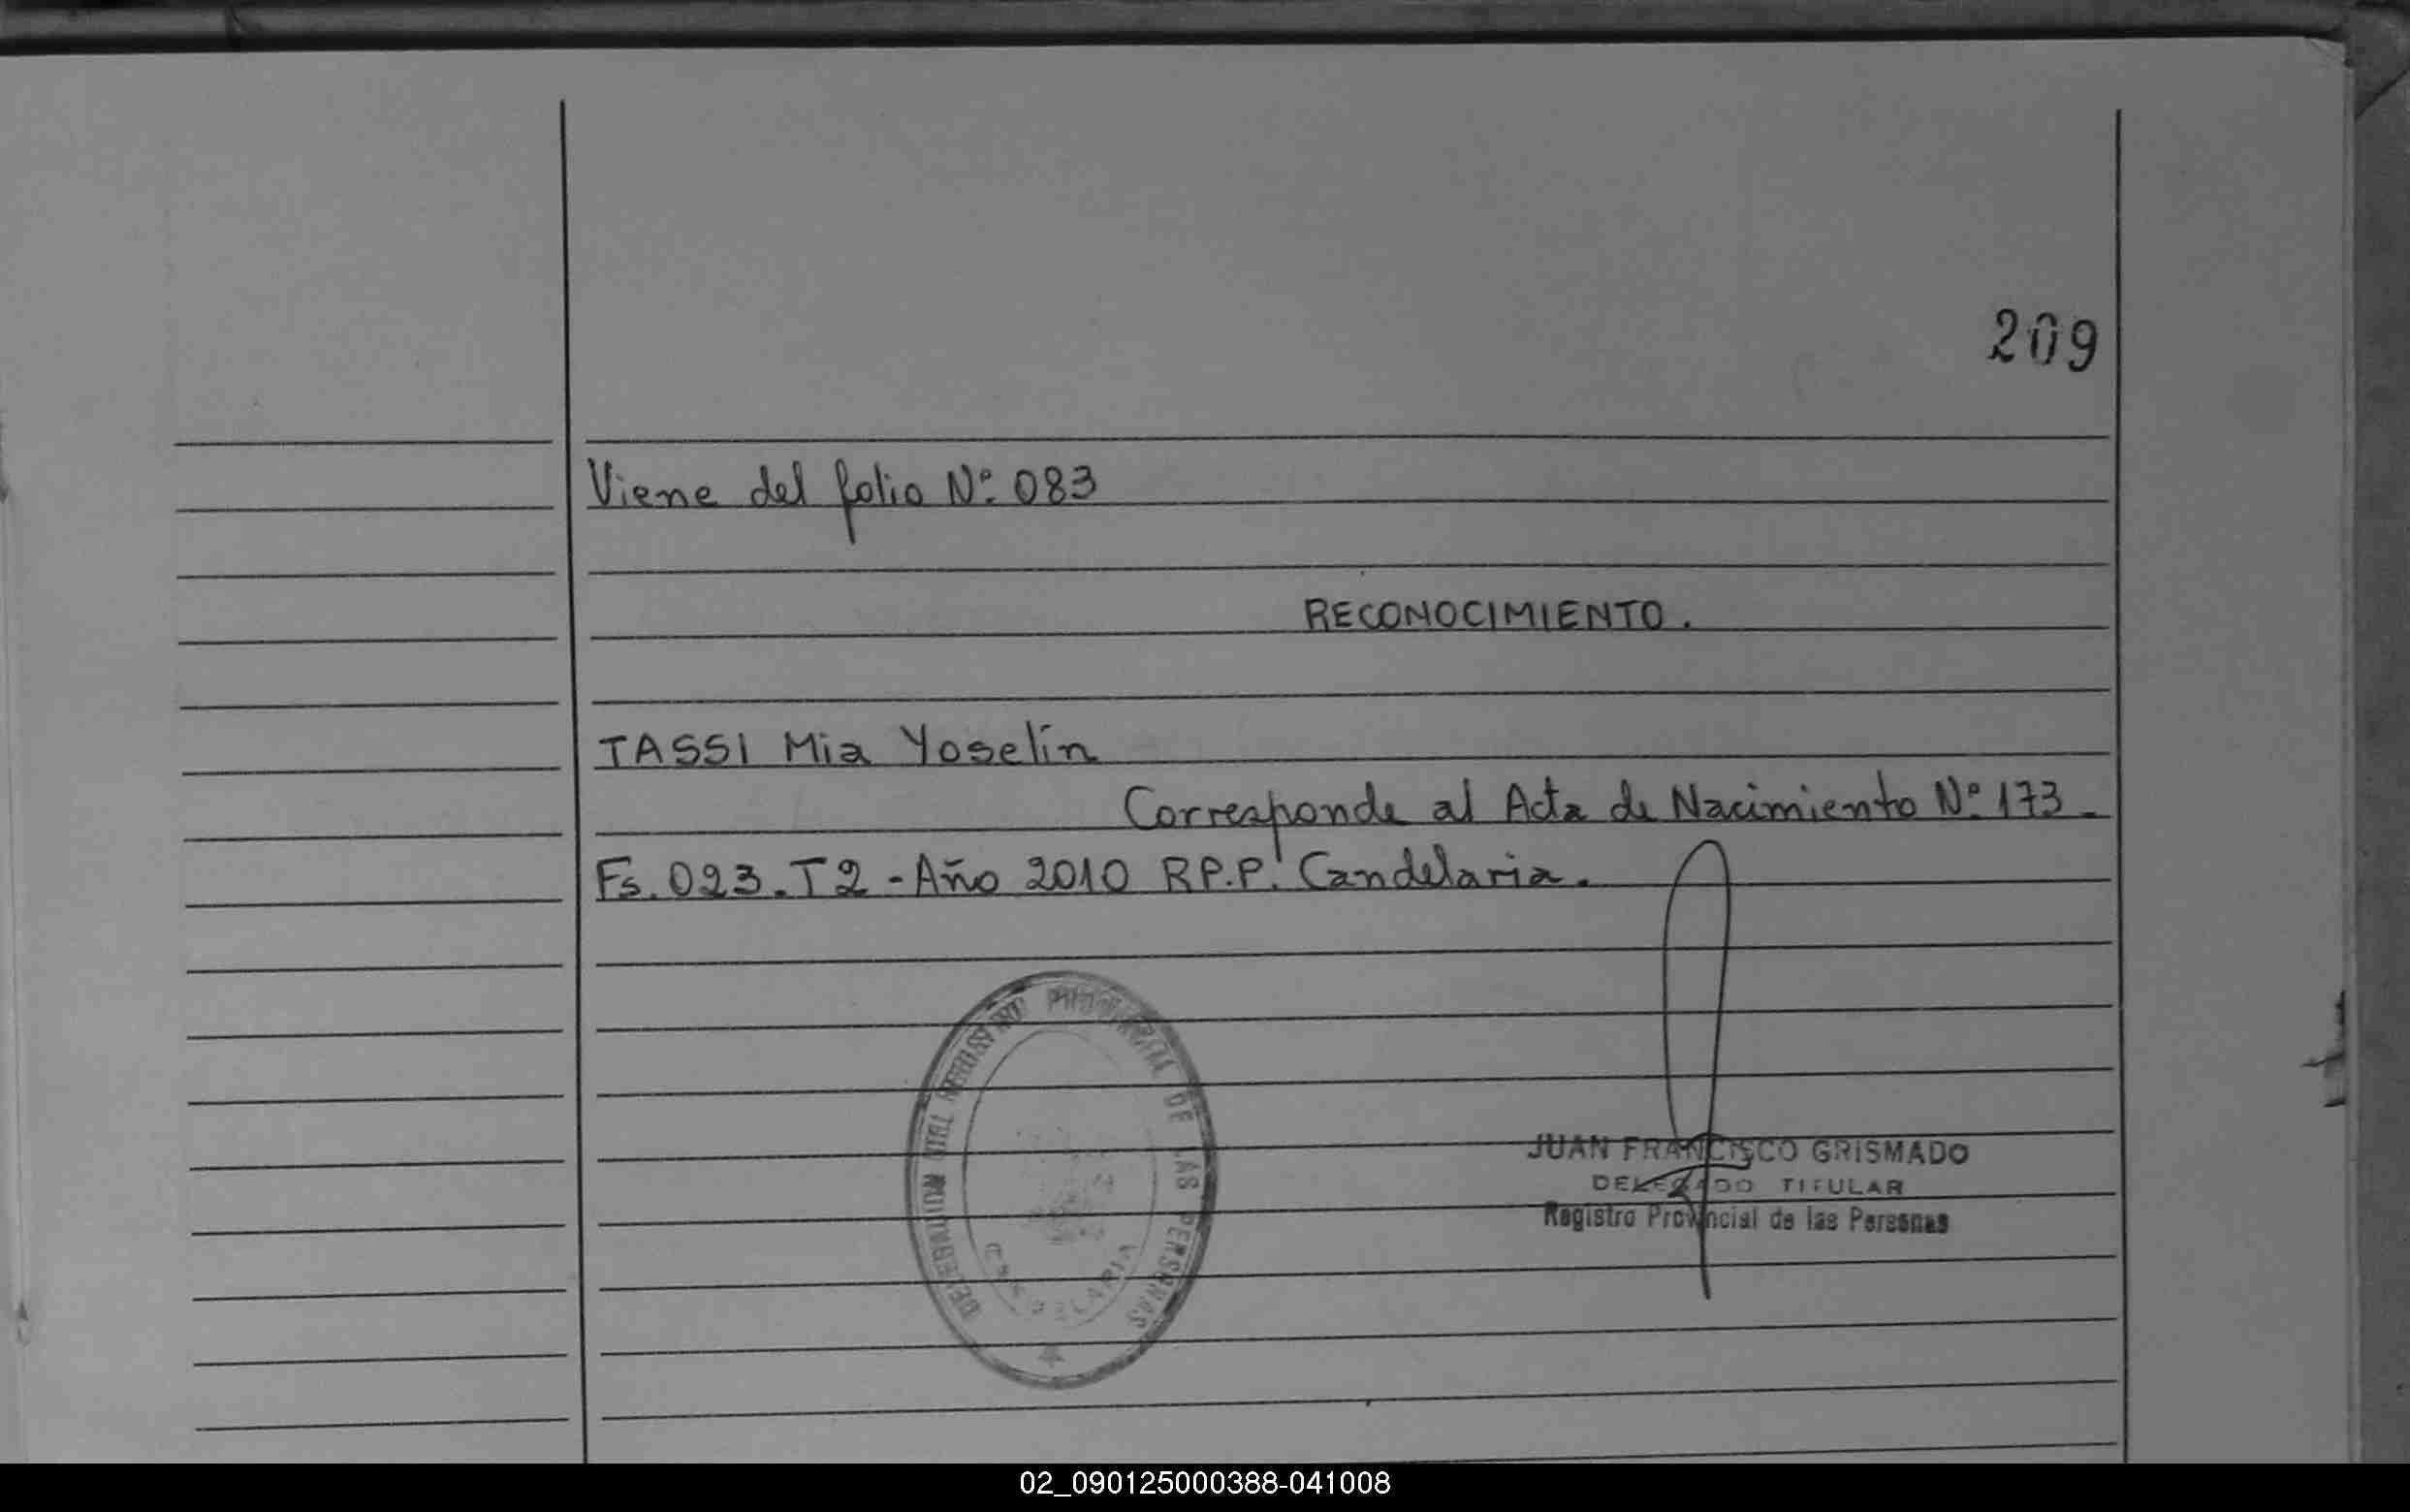 209
Viene del folio Nº 083
RECONOCIMIENTO.
TASSI Mia Yoselín
Corresponde al Acta de Nacimiento Nº 173 -
Fs. 023. T2 - Año 2010 R.P.P. Candelaria.
DELEGACION DEL REGISTRO PROVINCIAL DE LAS PERSONAS
JUAN FRANCISCO GRISMADO
DELEGADO TITULAR
Registro Provincial de las Personas
02_090125000388-041008